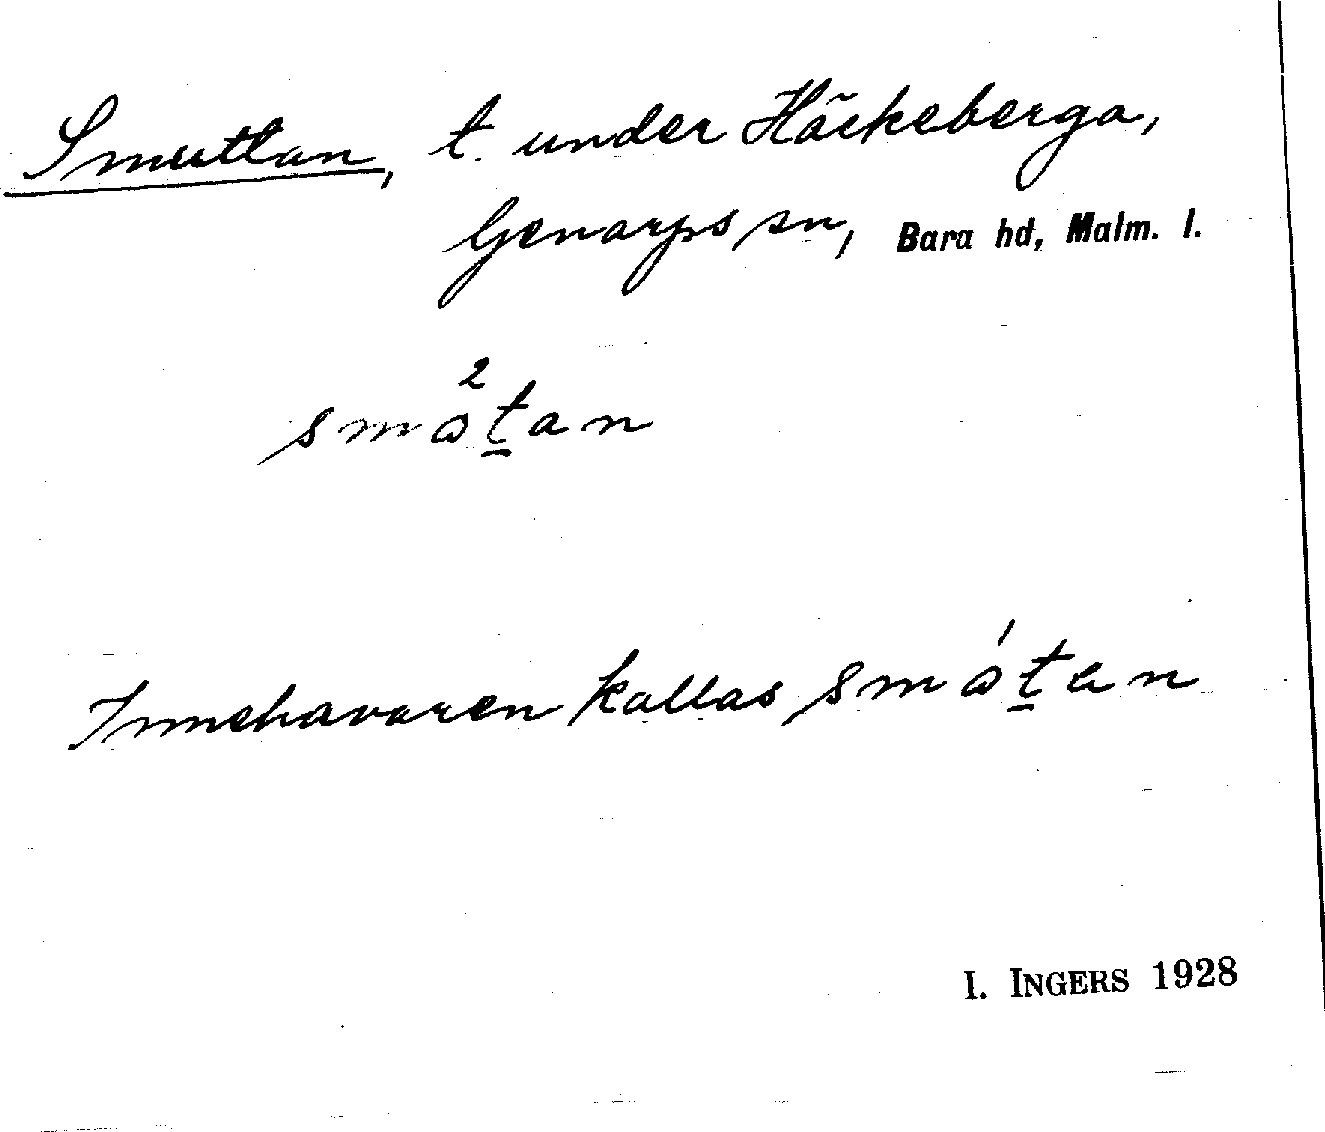 Smuttan, t. under Häckeberga,
Genarps sn, Bara hd, Malm. l.
smo²t̲an
Innehavaren kallas smo¹t̲en
I. INGERS 1928